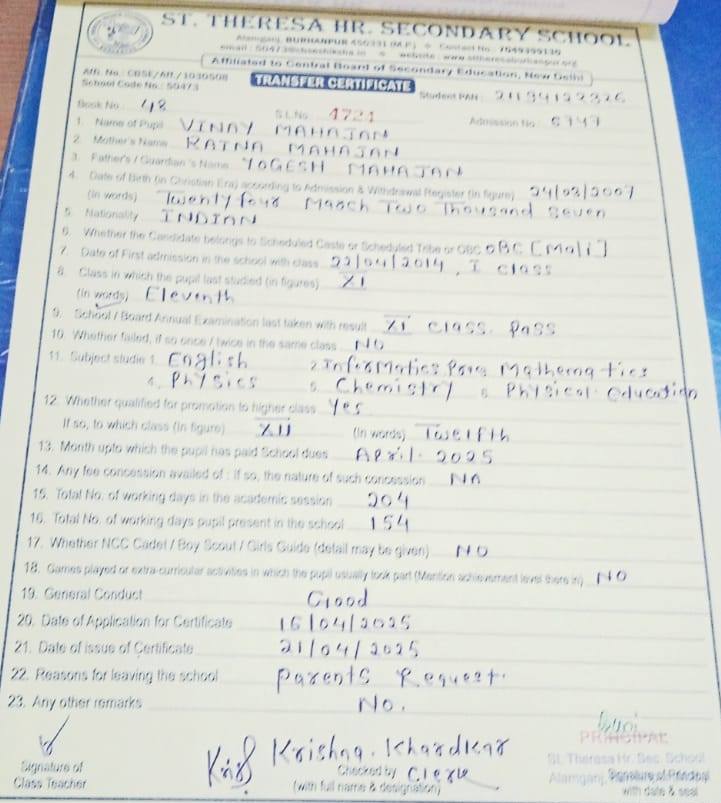 ST. THERESA HR. SECONDARY SCHOOL
Alamganj, BURHANPUR 450331 (M.P.)
Affiliated to Central Board of Secondary Education, New Delhi
Affi. No.: CBSE/Aff./1030508
TRANSFER CERTIFICATE
School Code No.: 50473
Student PAN: 21194122326
Book No.: 48
S.L.No. 4721
Admission No. 6747
1. Name of Pupil VINAY MAHAJAN
2. Mother's Name RATNA MAHAJAN
3. Father's / Guardian's Name YOGESH MAHAJAN
4. Date of Birth (in Christian Era) according to Admission & Withdrawal Register (in figure) 24/03/2007
(in words) Twenty four March Two Thousand Seven
5. Nationality INDIAN
6. Whether the Candidate belongs to Scheduled Caste or Scheduled Tribe or OBC OBC [Mali]
7. Date of First admission in the school with class 22/04/2014, I class
8. Class in which the pupil last studied (in figures) XI
(in words) Eleventh
9. School / Board Annual Examination last taken with result XI class. Pass
10. Whether failed, if so once / twice in the same class NO
11. Subject studie 1. English 2. Informatics Prac Mathematics
4. Physics 5. Chemistry 6. Physical education
12. Whether qualified for promotion to higher class Yes
If so, to which class (in figure) XII (in words) Twelfth
13. Month upto which the pupil has paid School dues April. 2025
14. Any fee concession availed of : if so, the nature of such concession NA
15. Total No. of working days in the academic session 204
16. Total No. of working days pupil present in the school 154
17. Whether NCC Cadet / Boy Scout / Girls Guide (detail may be given) NO
18. Games played or extra-curricular activities in which the pupil usually took part (Mention achievement level there in) NO
19. General Conduct Good
20. Date of Application for Certificate 16/04/2025
21. Date of issue of Certificate 21/04/2025
22. Reasons for leaving the school Parents Request.
23. Any other remarks No.
PRINCIPAL
Krishna. Khardkar
St. Theresa Hr. Sec. School
Signature of
Class Teacher
Checked by Clerk
(with full name & designation)
Alamganj,
Signature of Principal
with date & seal